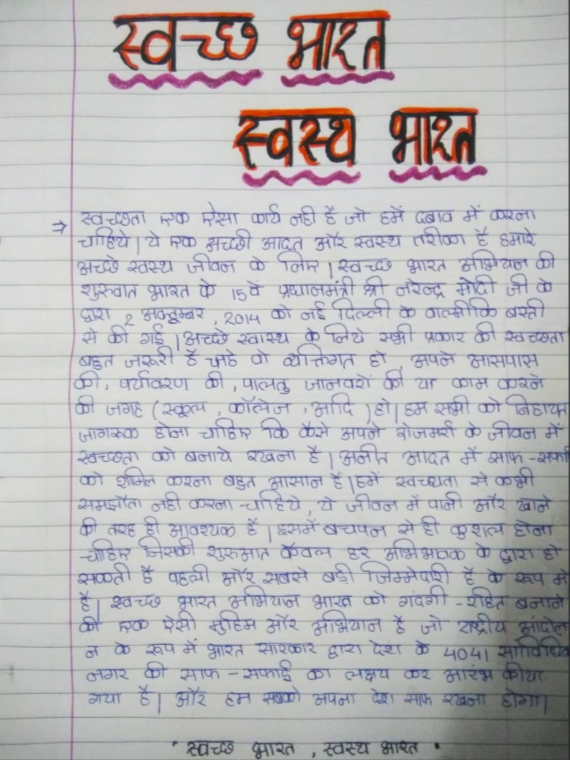 स्वच्छ भारत
स्वस्थ भारत
⇒ स्वच्छता एक ऐसा कार्य नही है जो हमें दबाव में करना
चाहिये। ये एक अच्छी आदत और स्वस्थ तरीका है हमारे
अच्छे स्वस्थ जीवन के लिए। स्वच्छ भारत अभियान की
शुरुवात भारत के 15 वें प्रधानमंत्री श्री नरेन्द्र मोदी जी के
द्वारा 2 अक्टूम्बर, 2014 को नई दिल्ली के वाल्मीकि बस्ती
से की गई। अच्छे स्वास्थ के लिये सभी प्रकार की स्वच्छता
बहुत जरूरी है चाहे वो व्यक्तिगत हो, अपने आसपास
की, पर्यावरण की, पालतु जानवरों की या काम करने
की जगह (स्कूल, कॉलेज, आदि) हो। हम सभी को निहायत
जागरुक होना चाहिए कि कैसे अपने रोजमर्रा के जीवन में
स्वच्छता को बनाये रखना है। अपनी आदत में साफ-सफाई
को शामिल करना बहुत आसान है। हमें स्वच्छता से कभी
समझौता नही करना चाहिये, ये जीवन में पानी और खाने
की तरह ही आवश्यक है। इसमें बचपन से ही कुशल होना
चाहिए जिसकी शुरुआत केवल हर अभिभावक के द्वारा हो
सकती है पहली और सबसे बडी जिम्मेदारी है के रूप में
है। स्वच्छ भारत अभियान भारत को गंदगी-रहित बनाने
की एक ऐसी मुहिम और अभियान है जो राष्ट्रीय आंदोल
न के रूप में भारत सारकार द्वारा देश के 4041 सांविधिक
नगर की साफ-सफाई का लक्षय कर आरंभ कीया
गया है। और हम सबको अपना देश साफ रखना होगा।
• स्वच्छ भारत, स्वस्थ भारत •